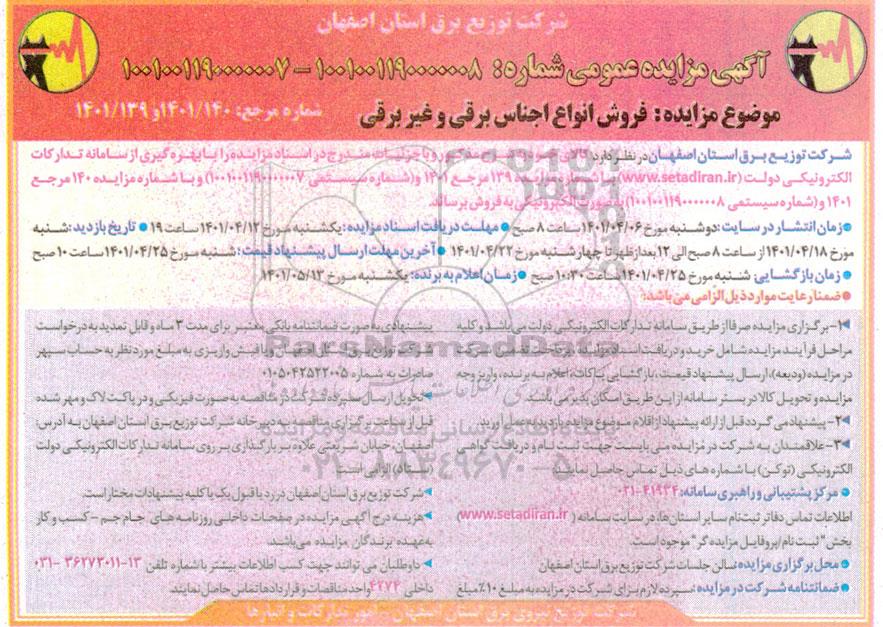 شرکت توزیع برق استان اصفهان
آگهی مزایده عمومی شماره: ۱۰۰۱۰۰۱۱۹۰۰۰۰۰۰۸ - ۱۰۰۱۰۰۱۱۹۰۰۰۰۰۰۷
موضوع مزایده: فروش انواع اجناس برقی و غیر برقی شماره مرجع: ۱۴۰۱/۱۴۰ و ۱۴۰۱/۱۳۹
شرکت توزیع برق استان اصفهان در نظر دارد کالای مندرج در اسناد مزایده را با بهره گیری از سامانه تدارکات
الکترونیکی دولت (www.setadiran.ir) با شماره مزایده ۱۳۹ مرجع ۱۴۰۱ و (شماره سیستمی ۱۰۰۱۰۰۱۱۹۰۰۰۰۰۰۷) و با شماره مزایده ۱۴۰ مرجع
۱۴۰۱ و (شماره سیستمی ۱۰۰۱۰۰۱۱۹۰۰۰۰۰۰۸) به صورت الکترونیکی به فروش برساند.
• زمان انتشار در سایت: دوشنبه مورخ ۱۴۰۱/۰۴/۰۶ ساعت ۸ صبح • مهلت دریافت اسناد مزایده: یکشنبه مورخ ۱۴۰۱/۰۴/۱۲ ساعت ۱۹ • تاریخ بازدید: شنبه
مورخ ۱۴۰۱/۰۴/۱۸ از ساعت ۸ صبح الی ۱۲ بعد از ظهر تا چهارشنبه مورخ ۱۴۰۱/۰۴/۲۲ • آخرین مهلت ارسال پیشنهاد قیمت: شنبه مورخ ۱۴۰۱/۰۴/۲۵ ساعت ۱۰ صبح
• زمان بازگشایی: شنبه مورخ ۱۴۰۱/۰۴/۲۵ ساعت ۱۰:۳۰ صبح • زمان اعلام به برنده: یکشنبه مورخ ۱۴۰۱/۰۵/۱۳
• ضمنا رعایت موارد ذیل الزامی می باشد:
۱- برگزاری مزایده صرفا از طریق سامانه تدارکات الکترونیکی دولت می باشد و کلیه
مراحل فرآیند مزایده شامل خرید و دریافت اسناد مزایده، پرداخت تضمین شرکت
در مزایده (ودیعه)، ارسال پیشنهاد قیمت، بازگشایی پاکات، اعلام به برنده، واریز وجه
مزایده و تحویل کالا در بستر سامانه از این طریق امکان پذیر می باشد.
۲- پیشنهاد می گردد قبل از ارائه پیشنهاد از اقلام موضوع مزایده بازدید به عمل آورید.
۳- علاقمندان به شرکت در مزایده می بایست جهت ثبت نام و دریافت گواهی
الکترونیکی (توکن) با شماره های ذیل تماس حاصل نمایند:
• مرکز پشتیبانی و راهبری سامانه: ۴۱۹۳۴-۰۲۱
اطلاعات تماس دفاتر ثبت نام سایر استان ها، در سایت سامانه (www.setadiran.ir)
بخش "ثبت نام/پروفایل مزایده گر" موجود است.
• محل برگزاری مزایده: سالن جلسات شرکت توزیع برق استان اصفهان
• ضمانتنامه شرکت در مزایده: سپرده لازم برای شرکت در مزایده به مبلغ ۱۰٪ مبلغ
پیشنهادی به صورت ضمانتنامه بانکی معتبر برای مدت ۳ ماه و قابل تمدید به درخواست
شرکت توزیع برق استان اصفهان و یا فیش واریزی به مبلغ مورد نظر به حساب سپهر
صادرات به شماره ۰۱۰۵۰۴۲۵۲۲۰۰۵
تحویل / ارسال سپرده شرکت در مناقصه به صورت فیزیکی و در پاکت لاک و مهر شده
قبل از ساعت برگزاری مناقصه به دبیرخانه شرکت توزیع برق استان اصفهان به آدرس:
اصفهان، خیابان شریعتی علاوه بر بارگذاری بر روی سامانه تدارکات الکترونیکی دولت
(ستاد) الزامی است.
شرکت توزیع برق استان اصفهان در رد یا قبول یک یا کلیه پیشنهادات مختار است.
هزینه درج آگهی مزایده در صفحات داخلی روزنامه های جام جم - کسب و کار
به عهده برندگان مزایده می باشد.
داوطلبان می توانند جهت کسب اطلاعات بیشتر با شماره تلفن ۱۳-۳۶۲۷۳۰۱۱-۰۳۱
داخلی ۴۲۷۴ واحد مناقصات و قراردادها تماس حاصل نمایند.
شرکت توزیع نیروی برق استان اصفهان - امور تدارکات و انبارها
ParsNamadData
۰۲۱-۸۸۳۴۹۶۷۰-۵